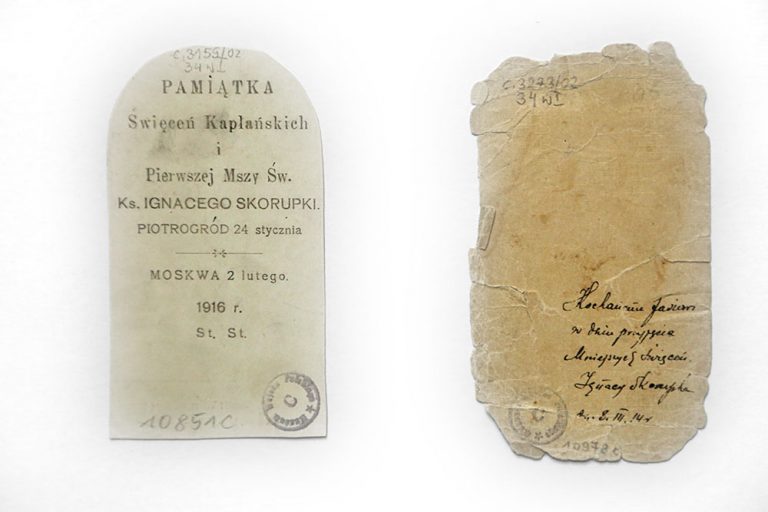 C. 3155/02
34 wI
PAMIĄTKA
Święceń Kapłańskich
i
Pierwszej Mszy Św.
Ks. IGNACEGO SKORUPKI.
PIOTROGRÓD 24 stycznia
MOSKWA 2 lutego.
1916 r.
St. St.
C
10851C
C. 3273/02
34 wI
w dniu przyjęcia
Mniejszych Święceń.
Ignacy Skorupka
2. III. 14 r
C
10978C